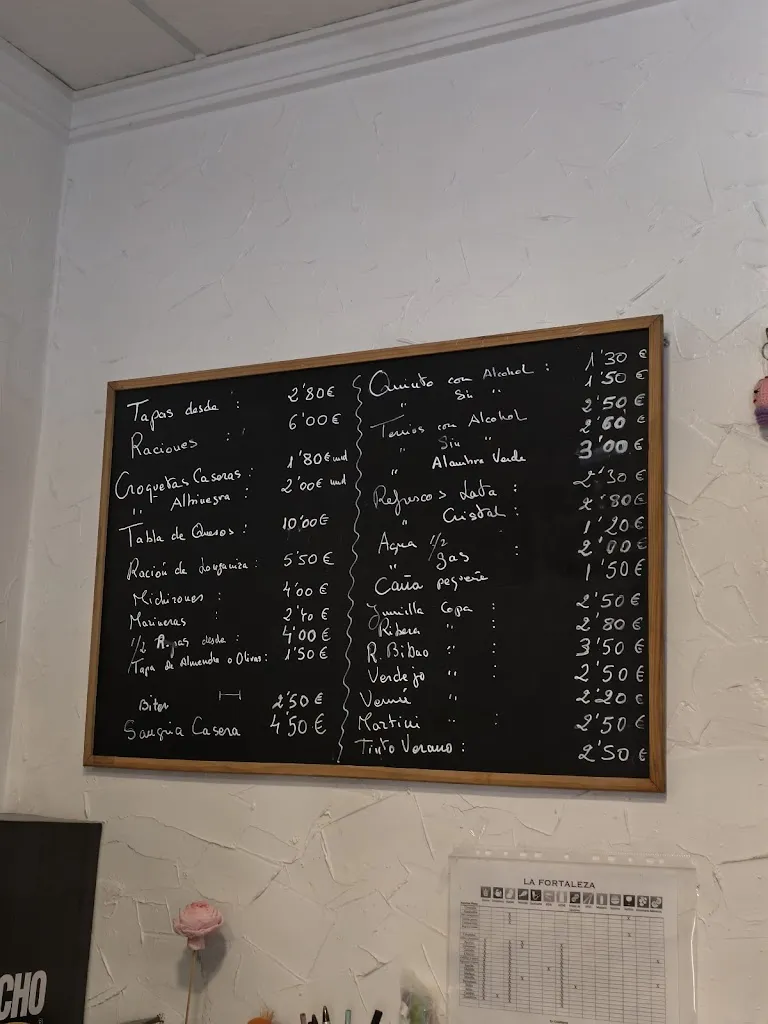 Tapas desde : 2'80€
Raciones : 6'00€
Croquetas Caseras : 1'80€ und
" Altinegra : 2'00€ und
Tabla de Quesos : 10'00€
Ración de Longaniza : 5'50€
Michirones : 4'00€
Marineras : 2'40€
1/2 desde : 4'00€
Tapa de Almendra o Olivas : 1'50€
Biter 2'50€
Sangria Casera 4'50€
Quinto con Alcohol : 1'30€
" Sin " 1'50€
Tercios con Alcohol 2'50€
" Sin " 2'60€
" Alambra Verde 3'00€
Refrescos Lata : 2'30€
" Cristal : 2'80€
Agua 1/2 1'20€
" gas : 2'00€
Caña pequeña 1'50€
Jumilla Copa : 2'50€
Ribera " : 2'80€
R. Bibao " : 3'50€
Verdejo " : 2'50€
Vermú " 2'20€
Martini " : 2'50€
Tinto Verano : 2'50€
LA FORTALEZA
CHO